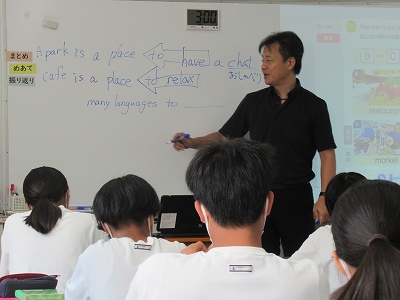 3:00
A park is a place to have a chat
おしゃべり
cafe is a place to relax
many languages to
まとめ
めあて
振り返り
market